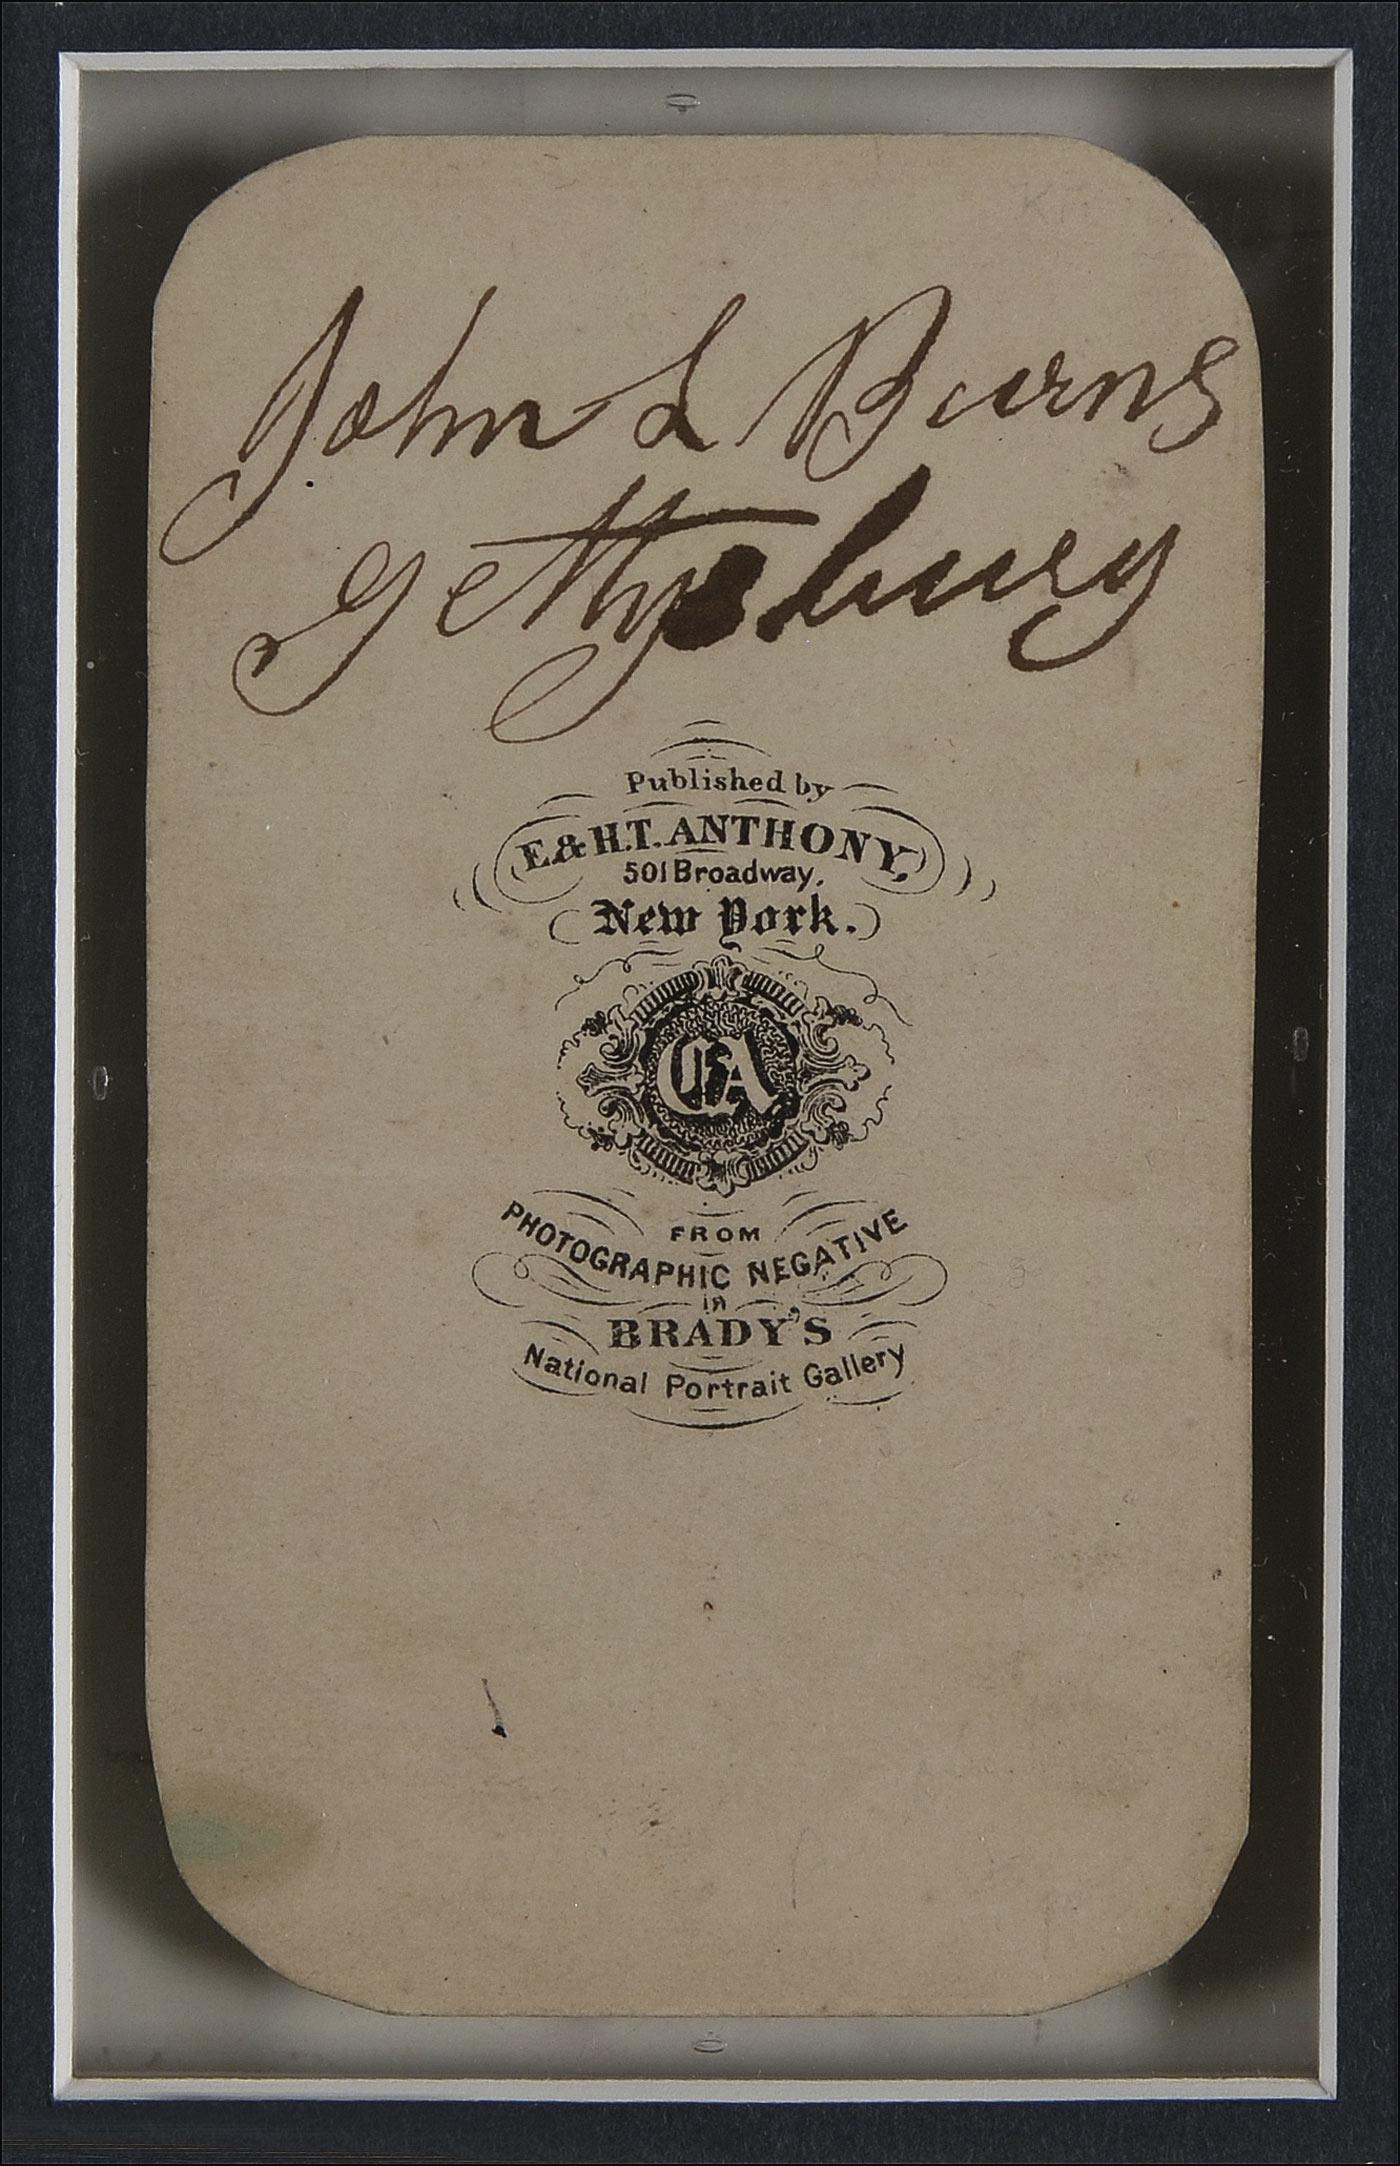 John L Burns
Gettysburg
Published by
E. & H.T. ANTHONY,
501 Broadway,
New York.
EA
FROM
PHOTOGRAPHIC NEGATIVE
in
BRADY'S
National Portrait Gallery